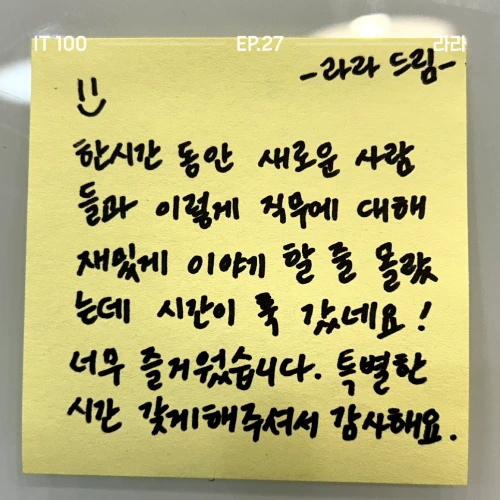 IT 100 EP.27 라라
-라라 드림-
한시간 동안 새로운 사람
들과 이렇게 직무에 대해
재밌게 이야기 할 줄 몰랐
는데 시간이 훅 갔네요!
너무 즐거웠습니다. 특별한
시간 갖게해주셔서 감사해요.